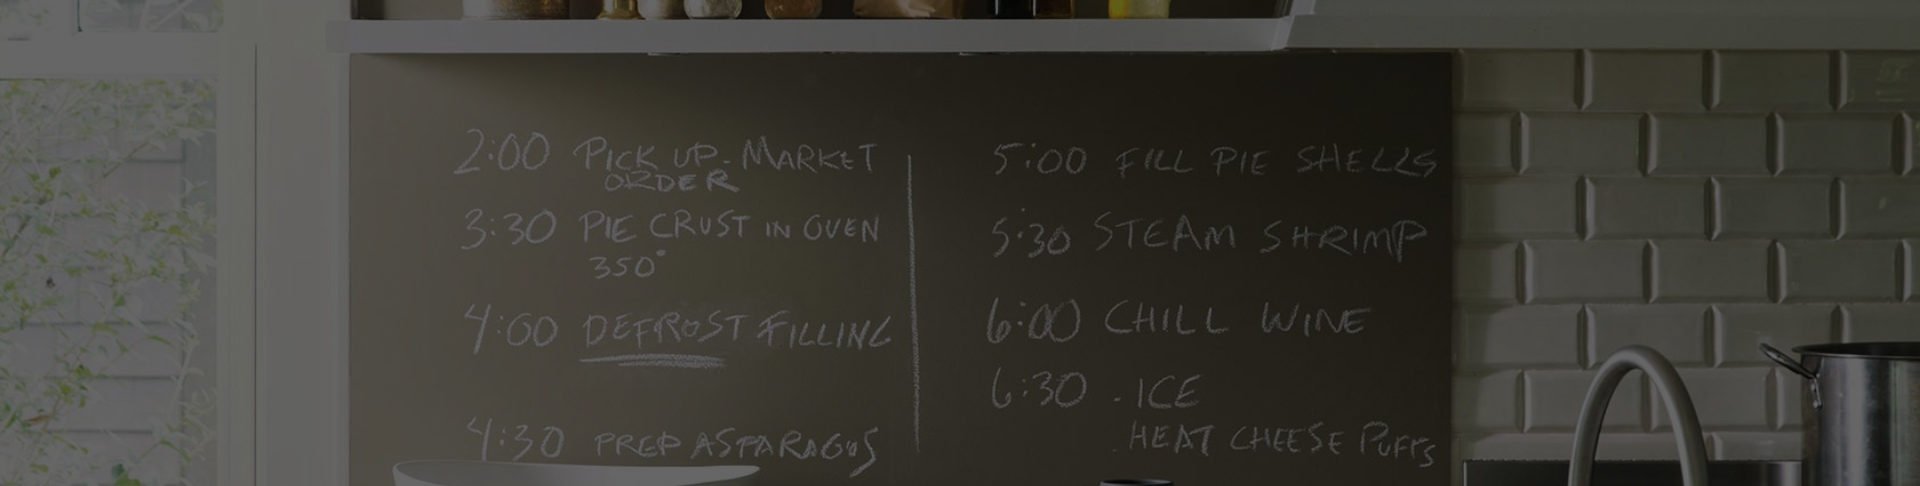 2:00 PICK UP-MARKET
ORDER
3:30 PIE CRUST IN OVEN
350°
4:00 DEFROST FILLING
4:30 PREP ASPARAGUS
5:00 FILL PIE SHELLS
5:30 STEAM SHRIMP
6:00 CHILL WINE
6:30 - ICE
HEAT CHEESE PUFFS